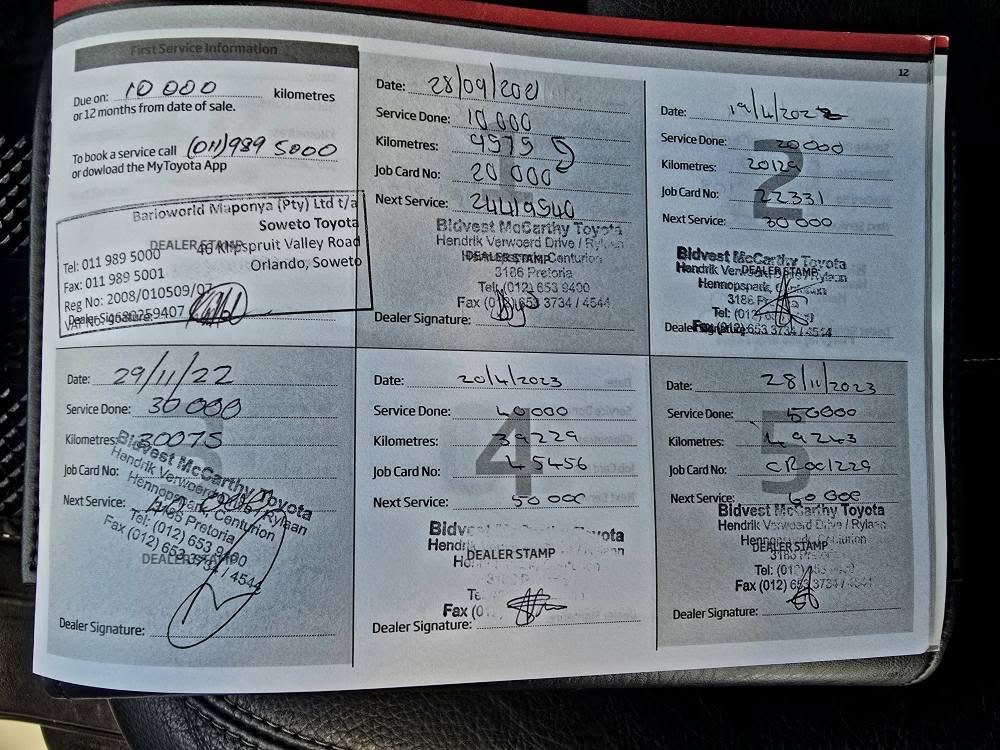 First Service Information
Due on: 10 000 kilometres
or 12 months from date of sale.
To book a service call (011) 989 5000
or dowload the MyToyota App
Barloworld Maponya (Pty) Ltd t/a
Soweto Toyota
DEALER STAMP
46 Klipspruit Valley Road
Orlando, Soweto
Tel: 011 989 5000
Fax: 011 989 5001
Reg No: 2008/010509/07
Dealer Signature:
1
Date: 28/09/2021
Service Done: 10 000
Kilometres: 9575
Job Card No: 20 000
Next Service: 24419540
Bidvest McCarthy Toyota
Hendrik Verwoerd Drive / Rylaan
DEALER STAMP Centurion
3186 Pretoria
Tel: (012) 653 9400
Fax (012) 653 3734 / 4544
Dealer Signature:
12
2
Date: 19/4/2022
Service Done: 20000
Kilometres: 20129
Job Card No: 22331
Next Service: 30 000
Bidvest McCarthy Toyota
Hendrik Verwoerd Rylaan
DEALER STAMP
Hennopspark,
3186
Tel: (012)
Dealer Signature:
Fax (012) 653 3734 / 4544
3
Date: 29/11/22
Service Done: 30 000
Kilometres: 30075
Job Card No:
Next Service:
Bidvest McCarthy Toyota
Hendrik Verwoerd Rylaan
Hennopspark, Centurion
3186 Pretoria
Tel: (012) 653 9400
Fax (012) 653 3734 / 4544
DEALER STAMP
Dealer Signature:
4
Date: 20/4/2023
Service Done: 40000
Kilometres: 39229
Job Card No: 45456
Next Service: 50 000
Bidvest Toyota
DEALER STAMP
Fax
Dealer Signature:
5
Date: 28/11/2023
Service Done: 50000
Kilometres: 49243
Job Card No:
Next Service: 60 000
Bidvest McCarthy Toyota
Hendrik Verwoerd Drive / Rylaan
DEALER STAMP Centurion
3186 Pretoria
Tel: (012)
Fax (012) 653 3734 / 4544
Dealer Signature: